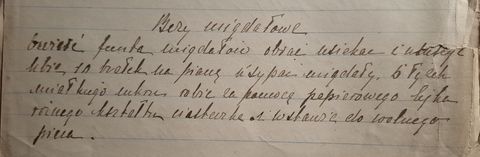 Bezy migdałowe
ćwierć funta migdałów obrać usiekać i
ubić 10 białek na pianę wsypać migdały, 6 łyżek
miałkiego cukru robić za pomocą papierowego lejka
różnego kształtu ciasteczka i wstawić do wolnego
pieca.